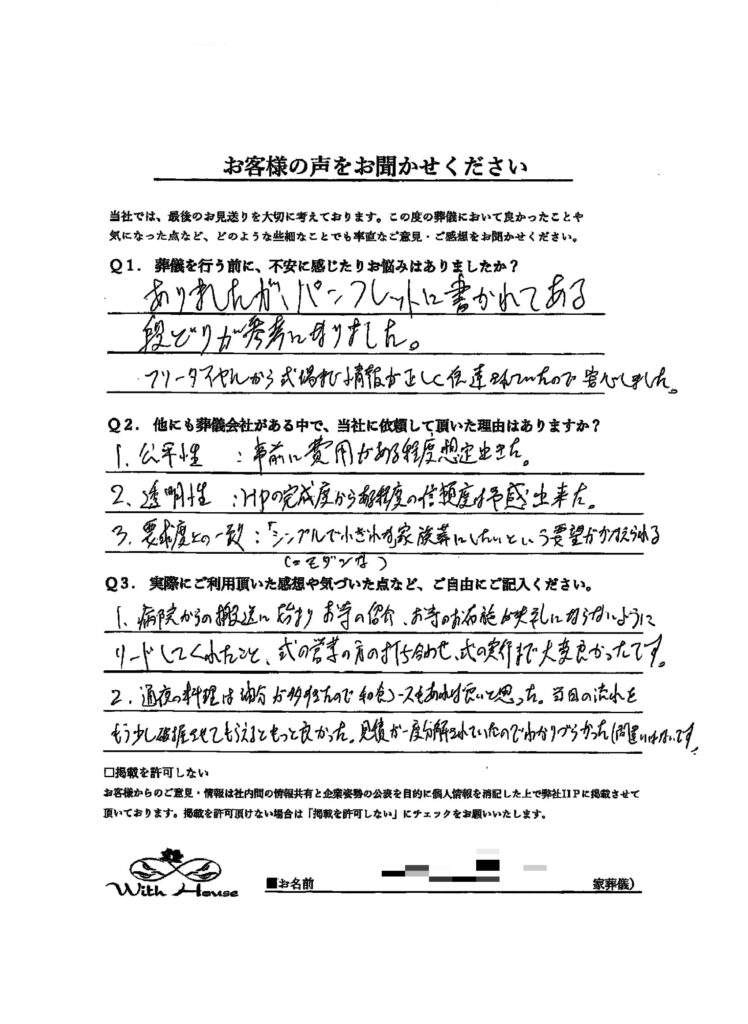 お客様の声をお聞かせください
当社では、最後のお見送りを大切に考えております。この度の葬儀において良かったことや
気になった点など、どのような些細なことでも率直なご意見・ご感想をお聞かせください。
Q1．葬儀を行う前に、不安に感じたりお悩みはありましたか？
ありましたが、パンフレットに書かれてある
段どりが参考になりました。
フリーダイヤルから式場まで情報が正しく伝達されていたので安心しました。
Q2．他にも葬儀会社がある中で、当社に依頼して頂いた理由はありますか？
1、公平性 ：事前に費用がある程度想定出きた。
2、透明性 ：HPの完成度からある程度の信頼度は予感出来た。
3、要求度との一致：「シンプルで小ぎれいな家族葬にしたいという要望がかなえられる
（＝モダンな）
Q3．実際にご利用頂いた感想や気づいた点など、ご自由にご記入ください。
1、病院からの搬送に始まり お寺の紹介、お寺のお布施が失礼にならないように
リードしてくれたこと、式の営業の方の打ち合わせ、式の実行まで大変良かったです。
2、通夜の料理は油分が多すぎたので和食コースもあれば良いと思った。当日の流れを
もう少し把握させてもらえるともっと良かった。見積が一度分解されていたのでわかりづらかった（間違いはないです
□掲載を許可しない
お客様からのご意見・情報は社内間の情報共有と企業姿勢の公表を目的に個人情報を消記した上で弊社HPに掲載させて
頂いております。掲載を許可頂けない場合は「掲載を許可しない」にチェックをお願いいたします。
With House
■お名前 家葬儀）